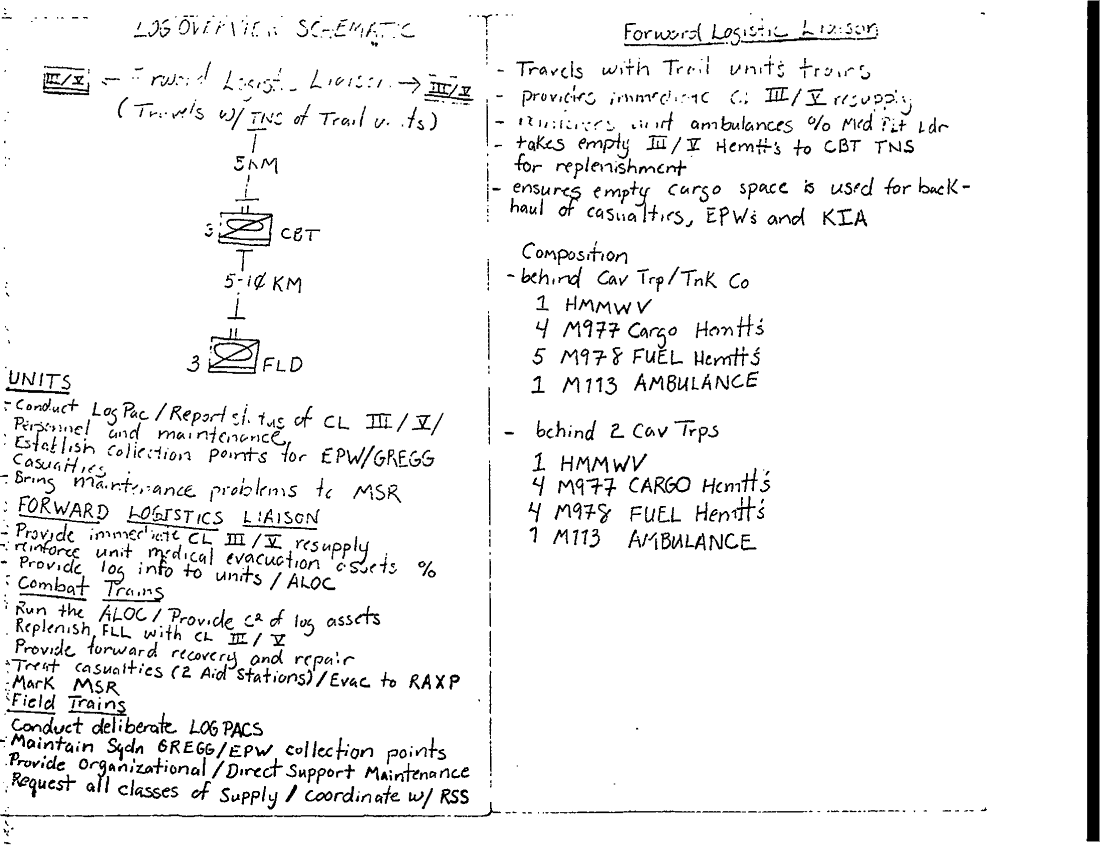 LOG OVERVIEW SCHEMATIC
III/V Forward Logistic Liaison III/V
(Travels w/ TNS of Trail units)
5KM
3 CBT
5-10 KM
3 FLD
UNITS
- Conduct LogPac / Report status of CL III / V /
Personnel and maintenance,
- Establish collection points for EPW/GREGG
Casualties
- Bring maintenance problems to MSR
: FORWARD LOGISTICS LIAISON
- Provide immediate CL III / V resupply
- reinforce unit medical evacuation assets %
- Provide log info to units / ALOC
: Combat Trains
Run the ALOC / Provide C² of log assets
Replenish FLL with CL III / V
Provide forward recovery and repair
Treat casualties (2 Aid Stations) / Evac to RAXP
- Mark MSR
Field Trains
Conduct deliberate LOG PACS
- Maintain Sqdn GREGG/EPW collection points
Provide Organizational / Direct Support Maintenance
Request all classes of Supply / Coordinate w/ RSS
Forward Logistic Liaison
- Travels with Trail units trains
- provides immediate CL III / V resupply
- unit ambulances % Med Plt Ldr
- takes empty III / V Hemtt's to CBT TNS
for replenishment
- ensures empty cargo space is used for back-
haul of casualties, EPWs and KIA
Composition
- behind Cav Trp / Tnk Co
1 HMMWV
4 M977 Cargo Hemtt's
5 M978 FUEL Hemtt's
1 M113 AMBULANCE
- behind 2 Cav Trps
1 HMMWV
4 M977 CARGO Hemtt's
4 M978 FUEL Hemtt's
1 M113 AMBULANCE